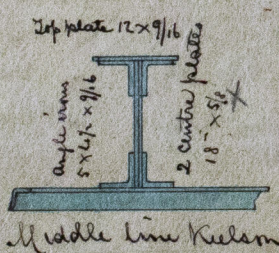 Top plate 12 x 9/16
angle irons
5 x 4 1/2 x 9/16
2 Centre plates
18" x 5/8
Middle line Keelson